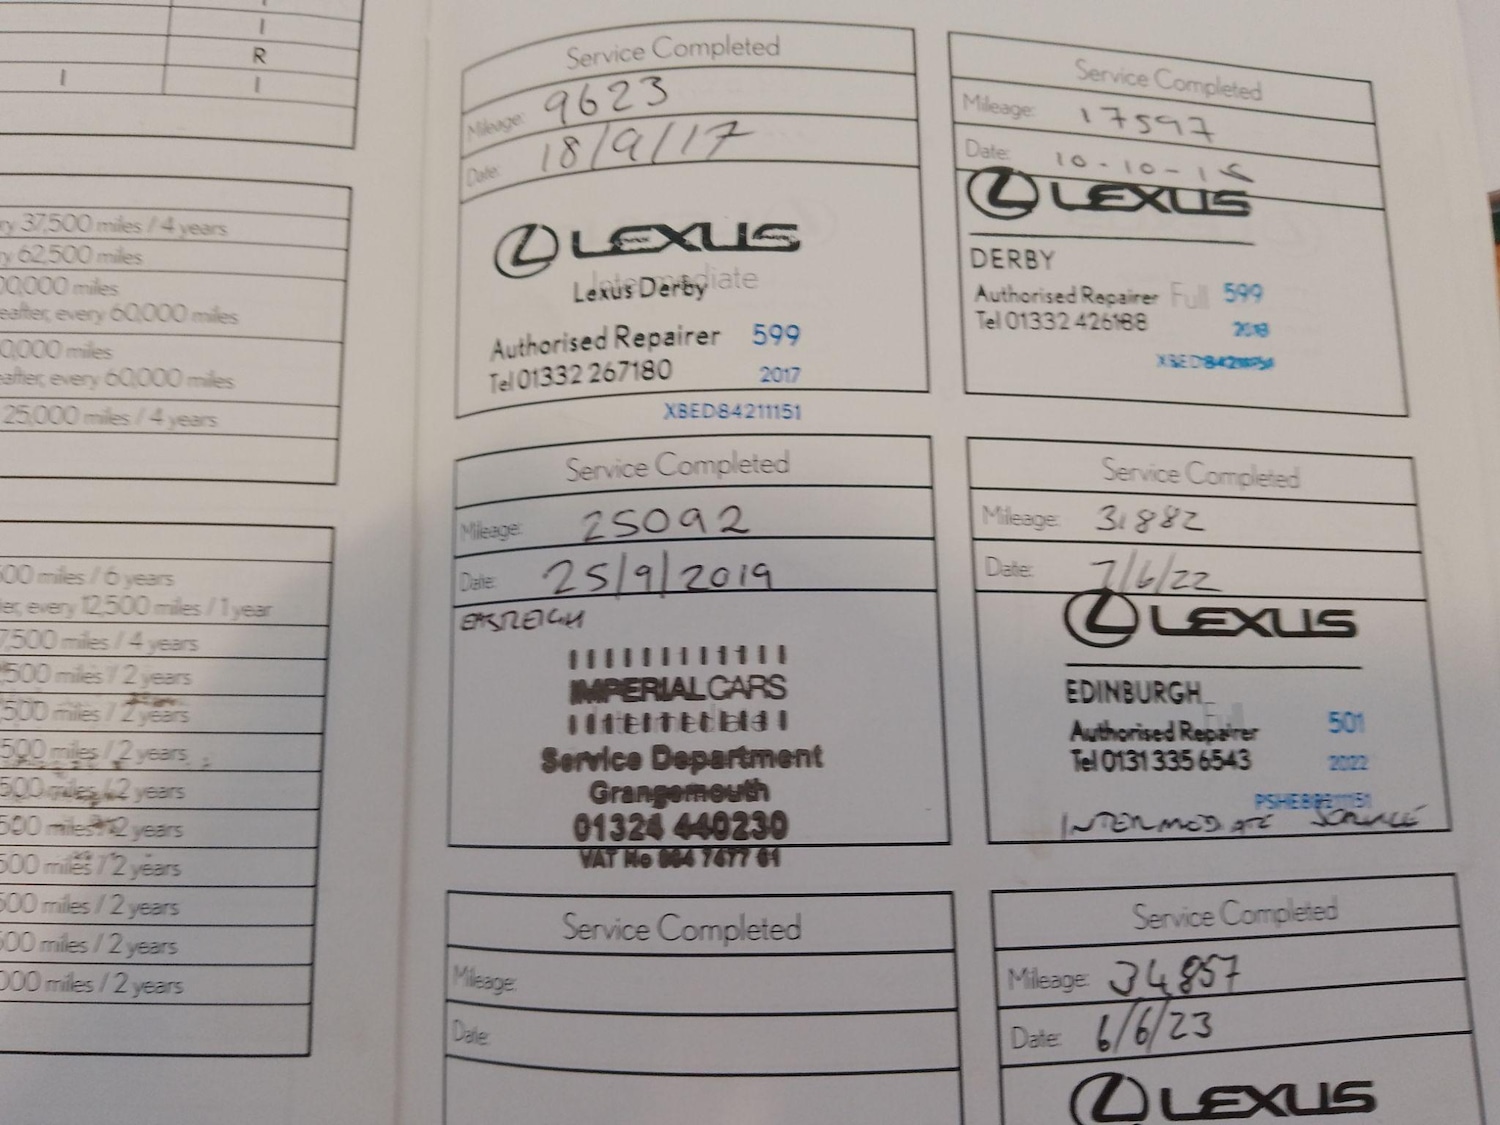 I
R
I I
ry 37,500 miles / 4 years
y 62,500 miles
00,000 miles
eafter, every 60,000 miles
0,000 miles
eafter, every 60,000 miles
25,000 miles / 4 years
500 miles / 6 years
ter, every 12,500 miles / 1 year
7,500 miles / 4 years
500 miles / 2 years
500 miles / 2 years
500 miles / 2 years
500 miles / 2 years
500 miles / 2 years
500 miles / 2 years
500 miles / 2 years
500 miles / 2 years
000 miles / 2 years
Service Completed
Mileage: 9623
Date: 18/9/17
LEXUS
Intermediate
Lexus Derby
Authorised Repairer 599
Tel 01332 267180 2017
XBED84211151
Service Completed
Mileage: 17597
Date: 10-10-18
LEXUS
DERBY
Authorised Repairer Full 599
Tel 01332 426188 2018
Service Completed
Mileage: 25092
Date: 25/9/2019
IMPERIAL CARS
Service Department
Grangemouth
01324 440230
VAT No
Service Completed
Mileage: 31882
Date: 7/6/22
LEXUS
EDINBURGH
Full
Authorised Repairer 501
Tel 0131 335 6543 2022
INTERMEDIATE SERVICE
Service Completed
Mileage:
Date:
Service Completed
Mileage: 34857
Date: 6/6/23
LEXUS